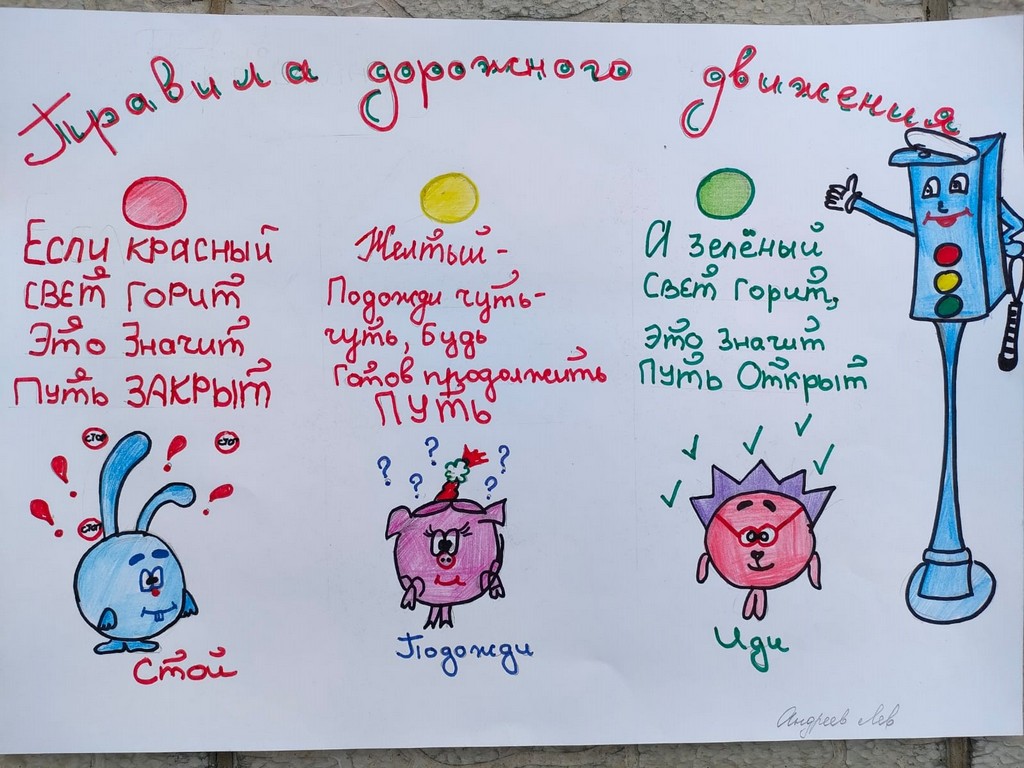 Правила дорожного движения
Если красный
свет горит
Это Значит
Путь ЗАКРЫТ
Желтый -
Подожди чуть-
чуть, Будь
Готов продолжить
ПУТЬ
А зелёный
Свет Горит,
Это Значит
Путь Открыт
СТОП
СТОП
СТОП
Стой
Подожди
Иди
Андреев Лев